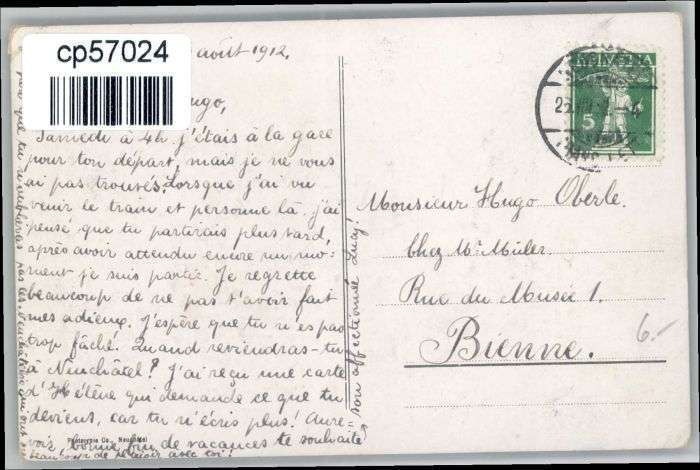 cp57024
août 1912.
Hugo,
Samedi à 4h j'étais à la gare
pour ton départ, mais je ne vous
ai pas trouvés. Lorsque j'ai vu
venir le train et personne là j'ai
pensé que tu partirais plus tard,
après avoir attendu encore un mo-
ment je suis partie. Je regrette
beaucoup de ne pas t'avoir fait
mes adieux. J'espère que tu n'es pas
trop fâché. Quand reviendras-tu
à Neuchâtel? J'ai reçu une carte
d'Hélève qui demande ce que tu
deviens, car tu n'écris plus! Aure-
voir, bonne fin de vacances te souhaite
son affectionnée
beaucoup de plaisir avec toi!
Phototypie Co., Neuchâtel
HELVETIA
5
Monsieur Hugo Oberle.
chez Mr. Müler.
Rue du Musée 1.
Bienne.
6.-